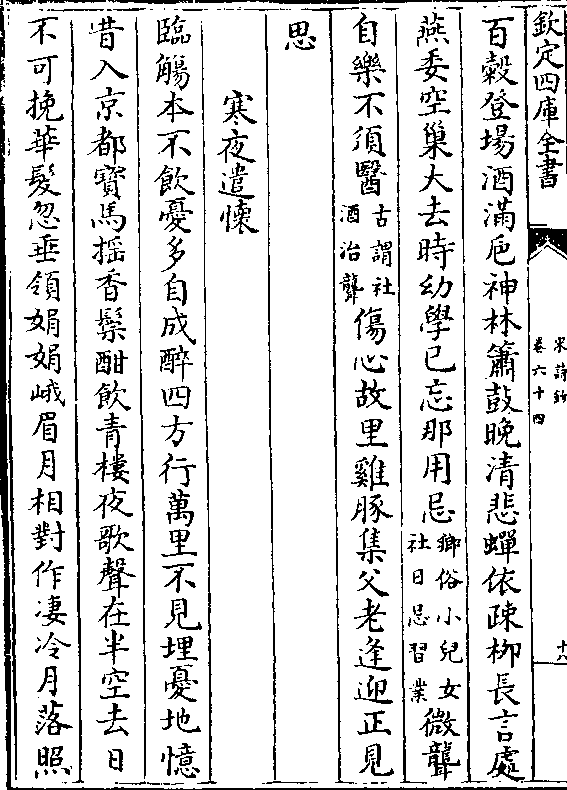 欽定四庫全書
宋詩鈔
卷六十四
十八
百穀登場酒滿卮神林簫鼓晚清悲蟬依疎栁長言處
燕委空巢大去時幼學已忘那用忌鄉俗小兒女社日忌習業微聾
自樂不須醫古謂社酒治聾傷心故里雞豚集父老逢迎正見
思
寒夜遣懐
臨觴本不飲憂多自成醉四方行萬里不見埋憂地憶
昔入京都寶馬揺香鬃酣飲青樓夜歌聲在半空去日
不可挽華髮忽垂領娟娟峨眉月相對作凄冷月落照